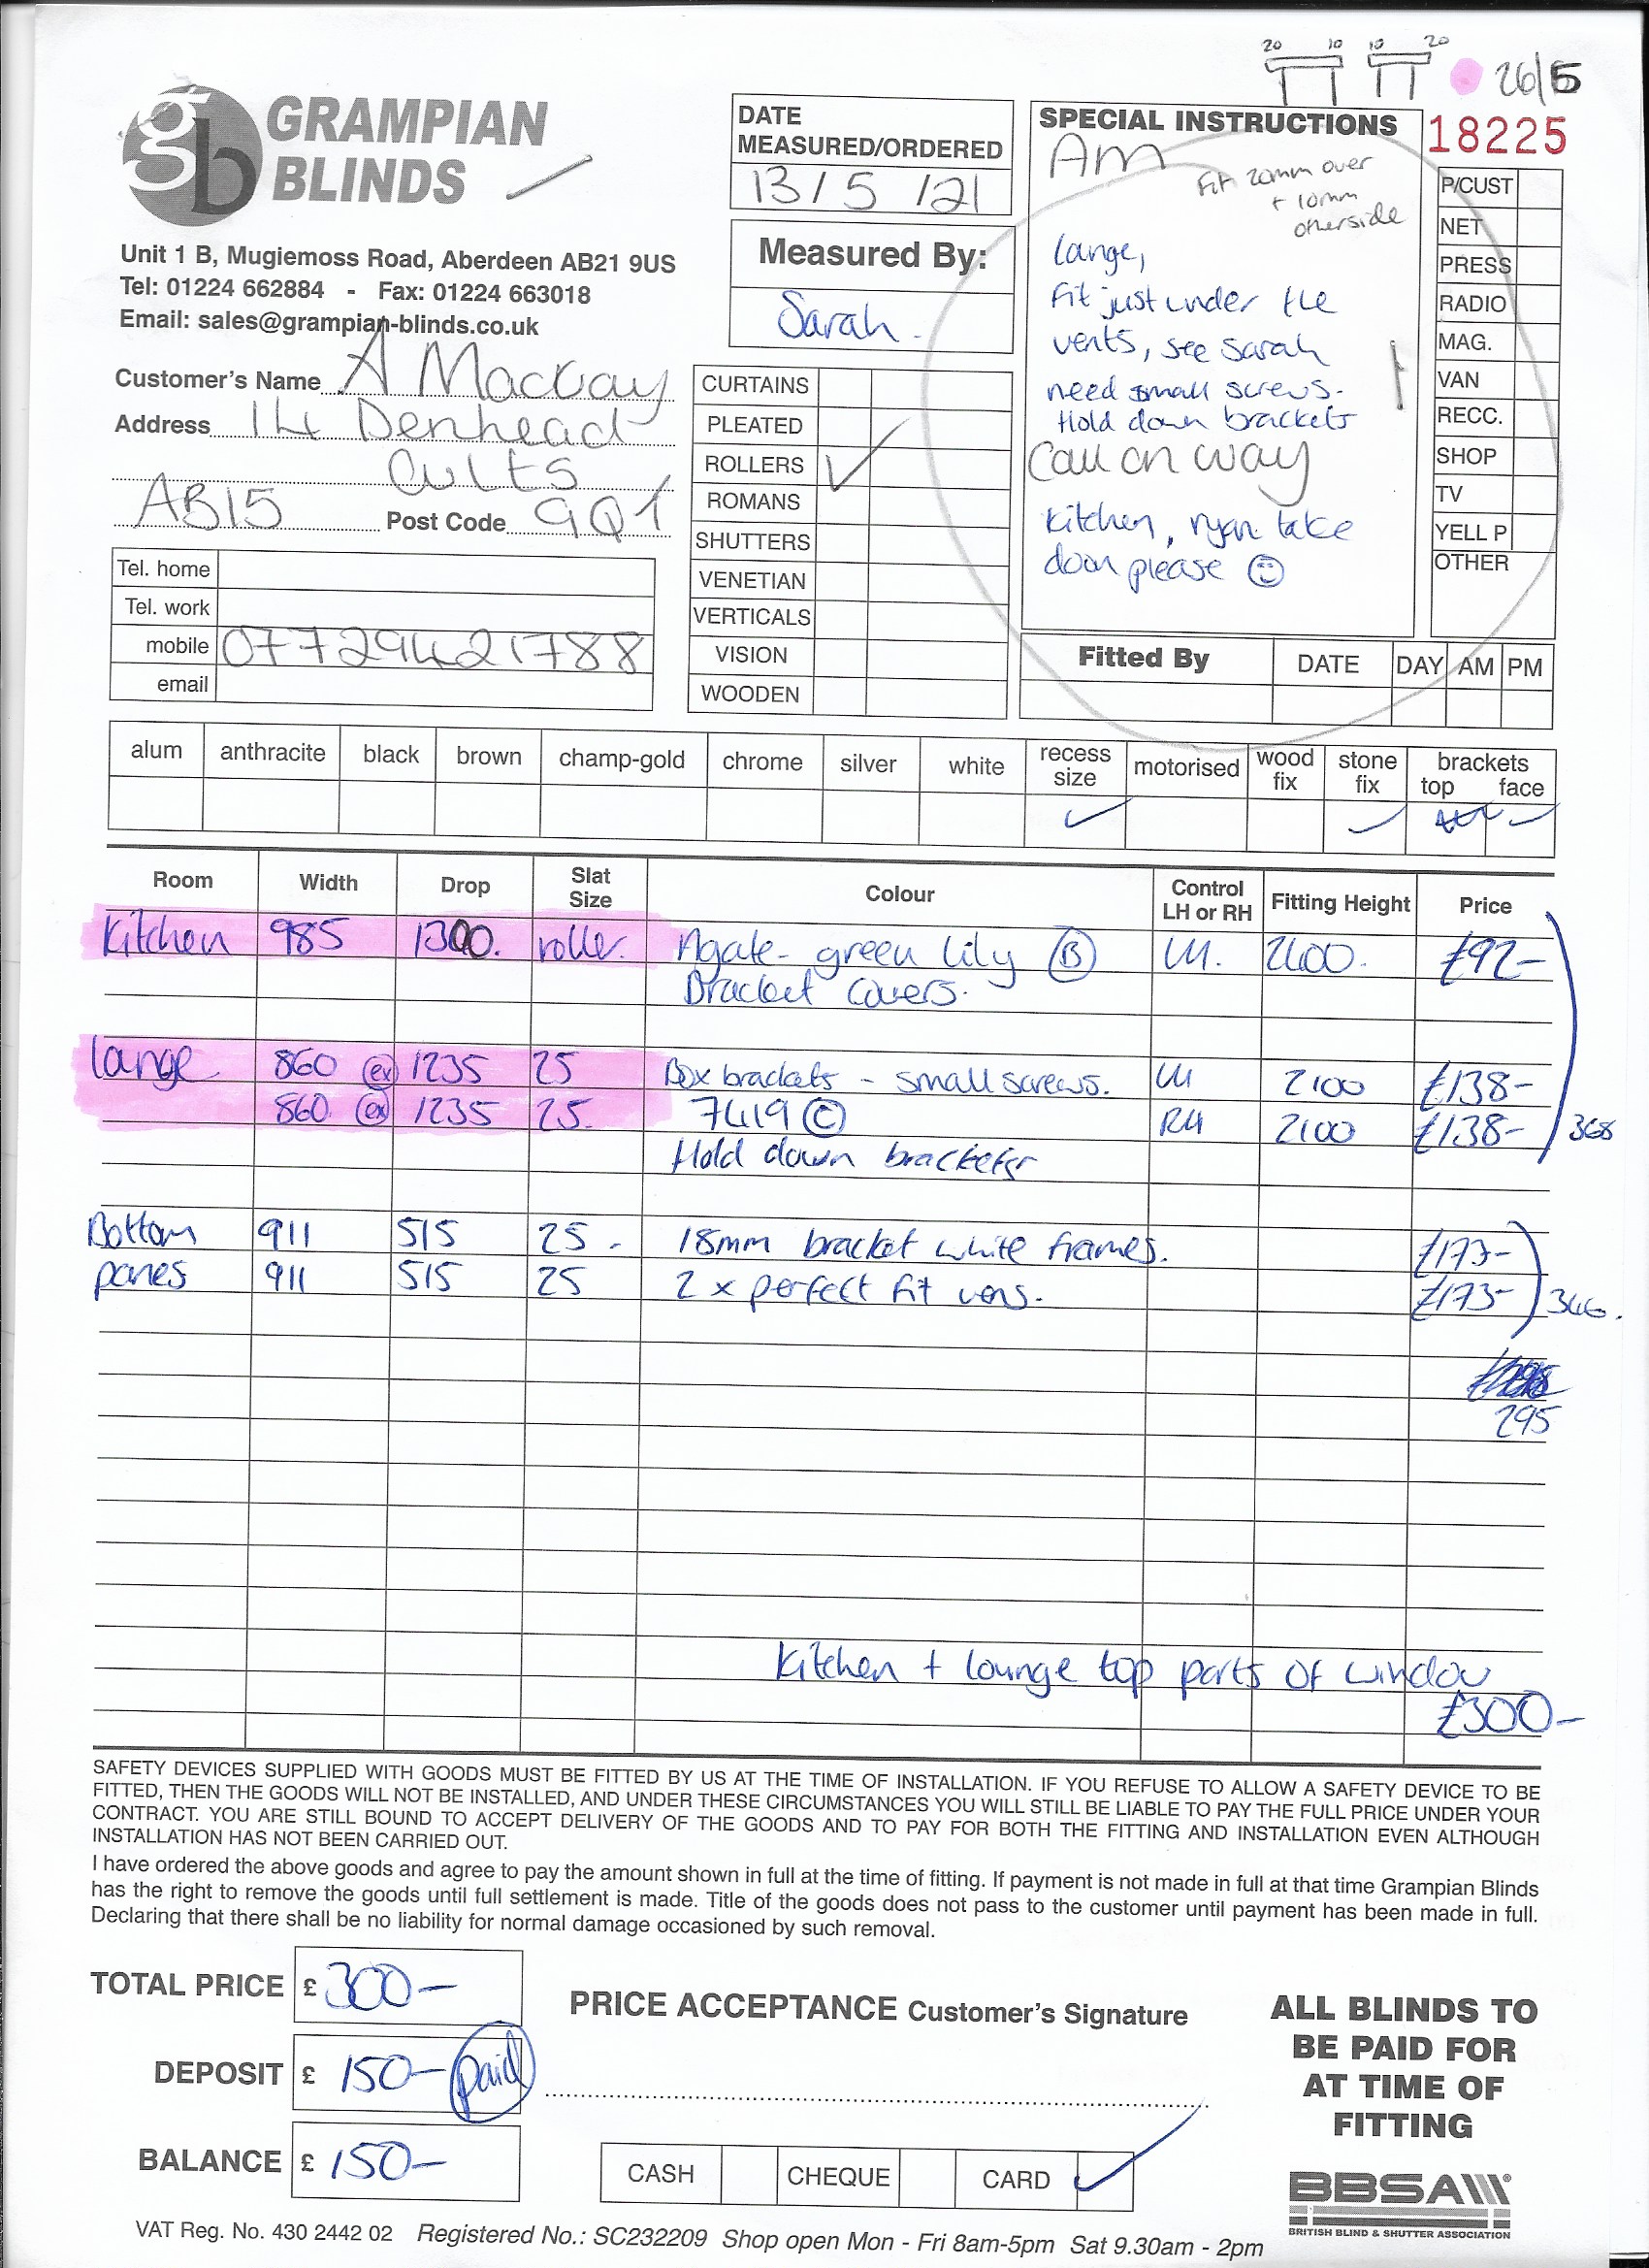 20 10 10 20
26/5
GRAMPIAN
BLINDS
gb
Unit 1 B, Mugiemoss Road, Aberdeen AB21 9US
Tel: 01224 662884 - Fax: 01224 663018
Email: sales@grampian-blinds.co.uk
Customer's Name A Mackay
Address 14 Denhead
Cults
AB15 Post Code 9QT
Tel. home
Tel. work
mobile 07729421788
email
DATE
MEASURED/ORDERED
13/5/21
Measured By:
Sarah.
CURTAINS
PLEATED
ROLLERS ✓
ROMANS
SHUTTERS
VENETIAN
VERTICALS
VISION
WOODEN
SPECIAL INSTRUCTIONS
AM
Fit 20mm over
+ 10mm
otherside
Lange,
Fit just under the
vents, see Sarah
need small screws.
Hold down brackets
Call on way
Kitchen, ryan take
down please ☺
18225
P/CUST
NET
PRESS
RADIO
MAG.
VAN
RECC.
SHOP
TV
YELL P
OTHER
Fitted By DATE DAY AM PM
alum anthracite black brown champ-gold chrome silver white recess size motorised wood fix stone fix brackets top face
✓ ✓ ✓
Room Width Drop Slat Size Colour Control LH or RH Fitting Height Price
Kitchen 985 1300. roller. Agate - green lily (B) LH. 2100. £92-
Bracket covers.
Lange 860 (ex) 1235 25 Box brackets - small screws. LH 2100 £138-
860 (ex) 1235 25. 7419 (C) RH 2100 £138- 368
Hold down brackets
Bottom 911 515 25 - 18mm bracket white frames. £173-
panes 911 515 25 2 x perfect fit vens. £173- 346.
295
Kitchen + lounge top parts of window
£300-
SAFETY DEVICES SUPPLIED WITH GOODS MUST BE FITTED BY US AT THE TIME OF INSTALLATION. IF YOU REFUSE TO ALLOW A SAFETY DEVICE TO BE
FITTED, THEN THE GOODS WILL NOT BE INSTALLED, AND UNDER THESE CIRCUMSTANCES YOU WILL STILL BE LIABLE TO PAY THE FULL PRICE UNDER YOUR
CONTRACT. YOU ARE STILL BOUND TO ACCEPT DELIVERY OF THE GOODS AND TO PAY FOR BOTH THE FITTING AND INSTALLATION EVEN ALTHOUGH
INSTALLATION HAS NOT BEEN CARRIED OUT.
I have ordered the above goods and agree to pay the amount shown in full at the time of fitting. If payment is not made in full at that time Grampian Blinds
has the right to remove the goods until full settlement is made. Title of the goods does not pass to the customer until payment has been made in full.
Declaring that there shall be no liability for normal damage occasioned by such removal.
TOTAL PRICE £ 300-
DEPOSIT £ 150- paid
BALANCE £ 150-
PRICE ACCEPTANCE Customer's Signature
CASH CHEQUE CARD ✓
ALL BLINDS TO
BE PAID FOR
AT TIME OF
FITTING
BBSA
BRITISH BLIND & SHUTTER ASSOCIATION
VAT Reg. No. 430 2442 02 Registered No.: SC232209 Shop open Mon - Fri 8am-5pm Sat 9.30am - 2pm